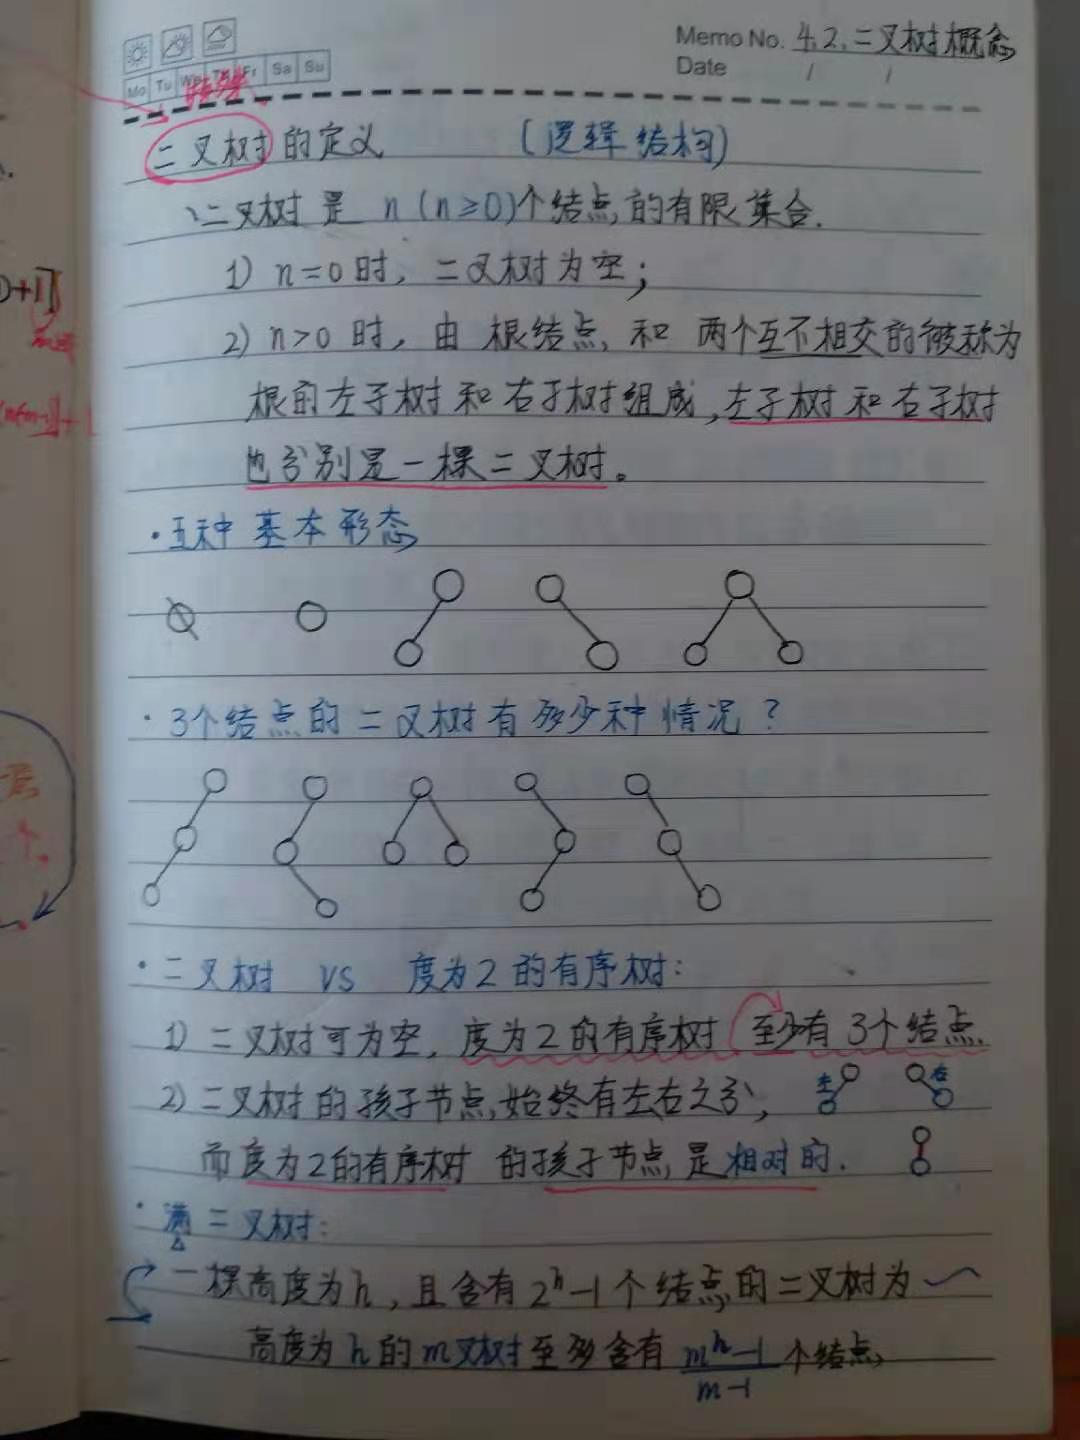 Memo No. 4.2. 二叉树概念
Date / /
Mo Tu We Th Fr Sa Su
二叉树的定义 (逻辑结构)
、二叉树是 n (n≥0)个结点的有限集合.
1) n=0时, 二叉树为空;
2) n>0 时, 由 根结点 和 两个互不相交的被称为
根的左子树和右子树组成,左子树和右子树
也分别是一棵二叉树。
·五种基本形态
·3个结点的二叉树有多少种情况?
·二叉树 VS 度为2的有序树:
1) 二叉树可为空, 度为2的有序树 至少有3个结点.
2) 二叉树的孩子节点,始终有左右之分, 左 右
而度为2的有序树 的孩子节点是相对的.
·满二叉树:
一棵高度为h, 且含有2^h-1个结点的二叉树为
高度为h的m叉树至多含有 (m^h-1)/(m-1) 个结点